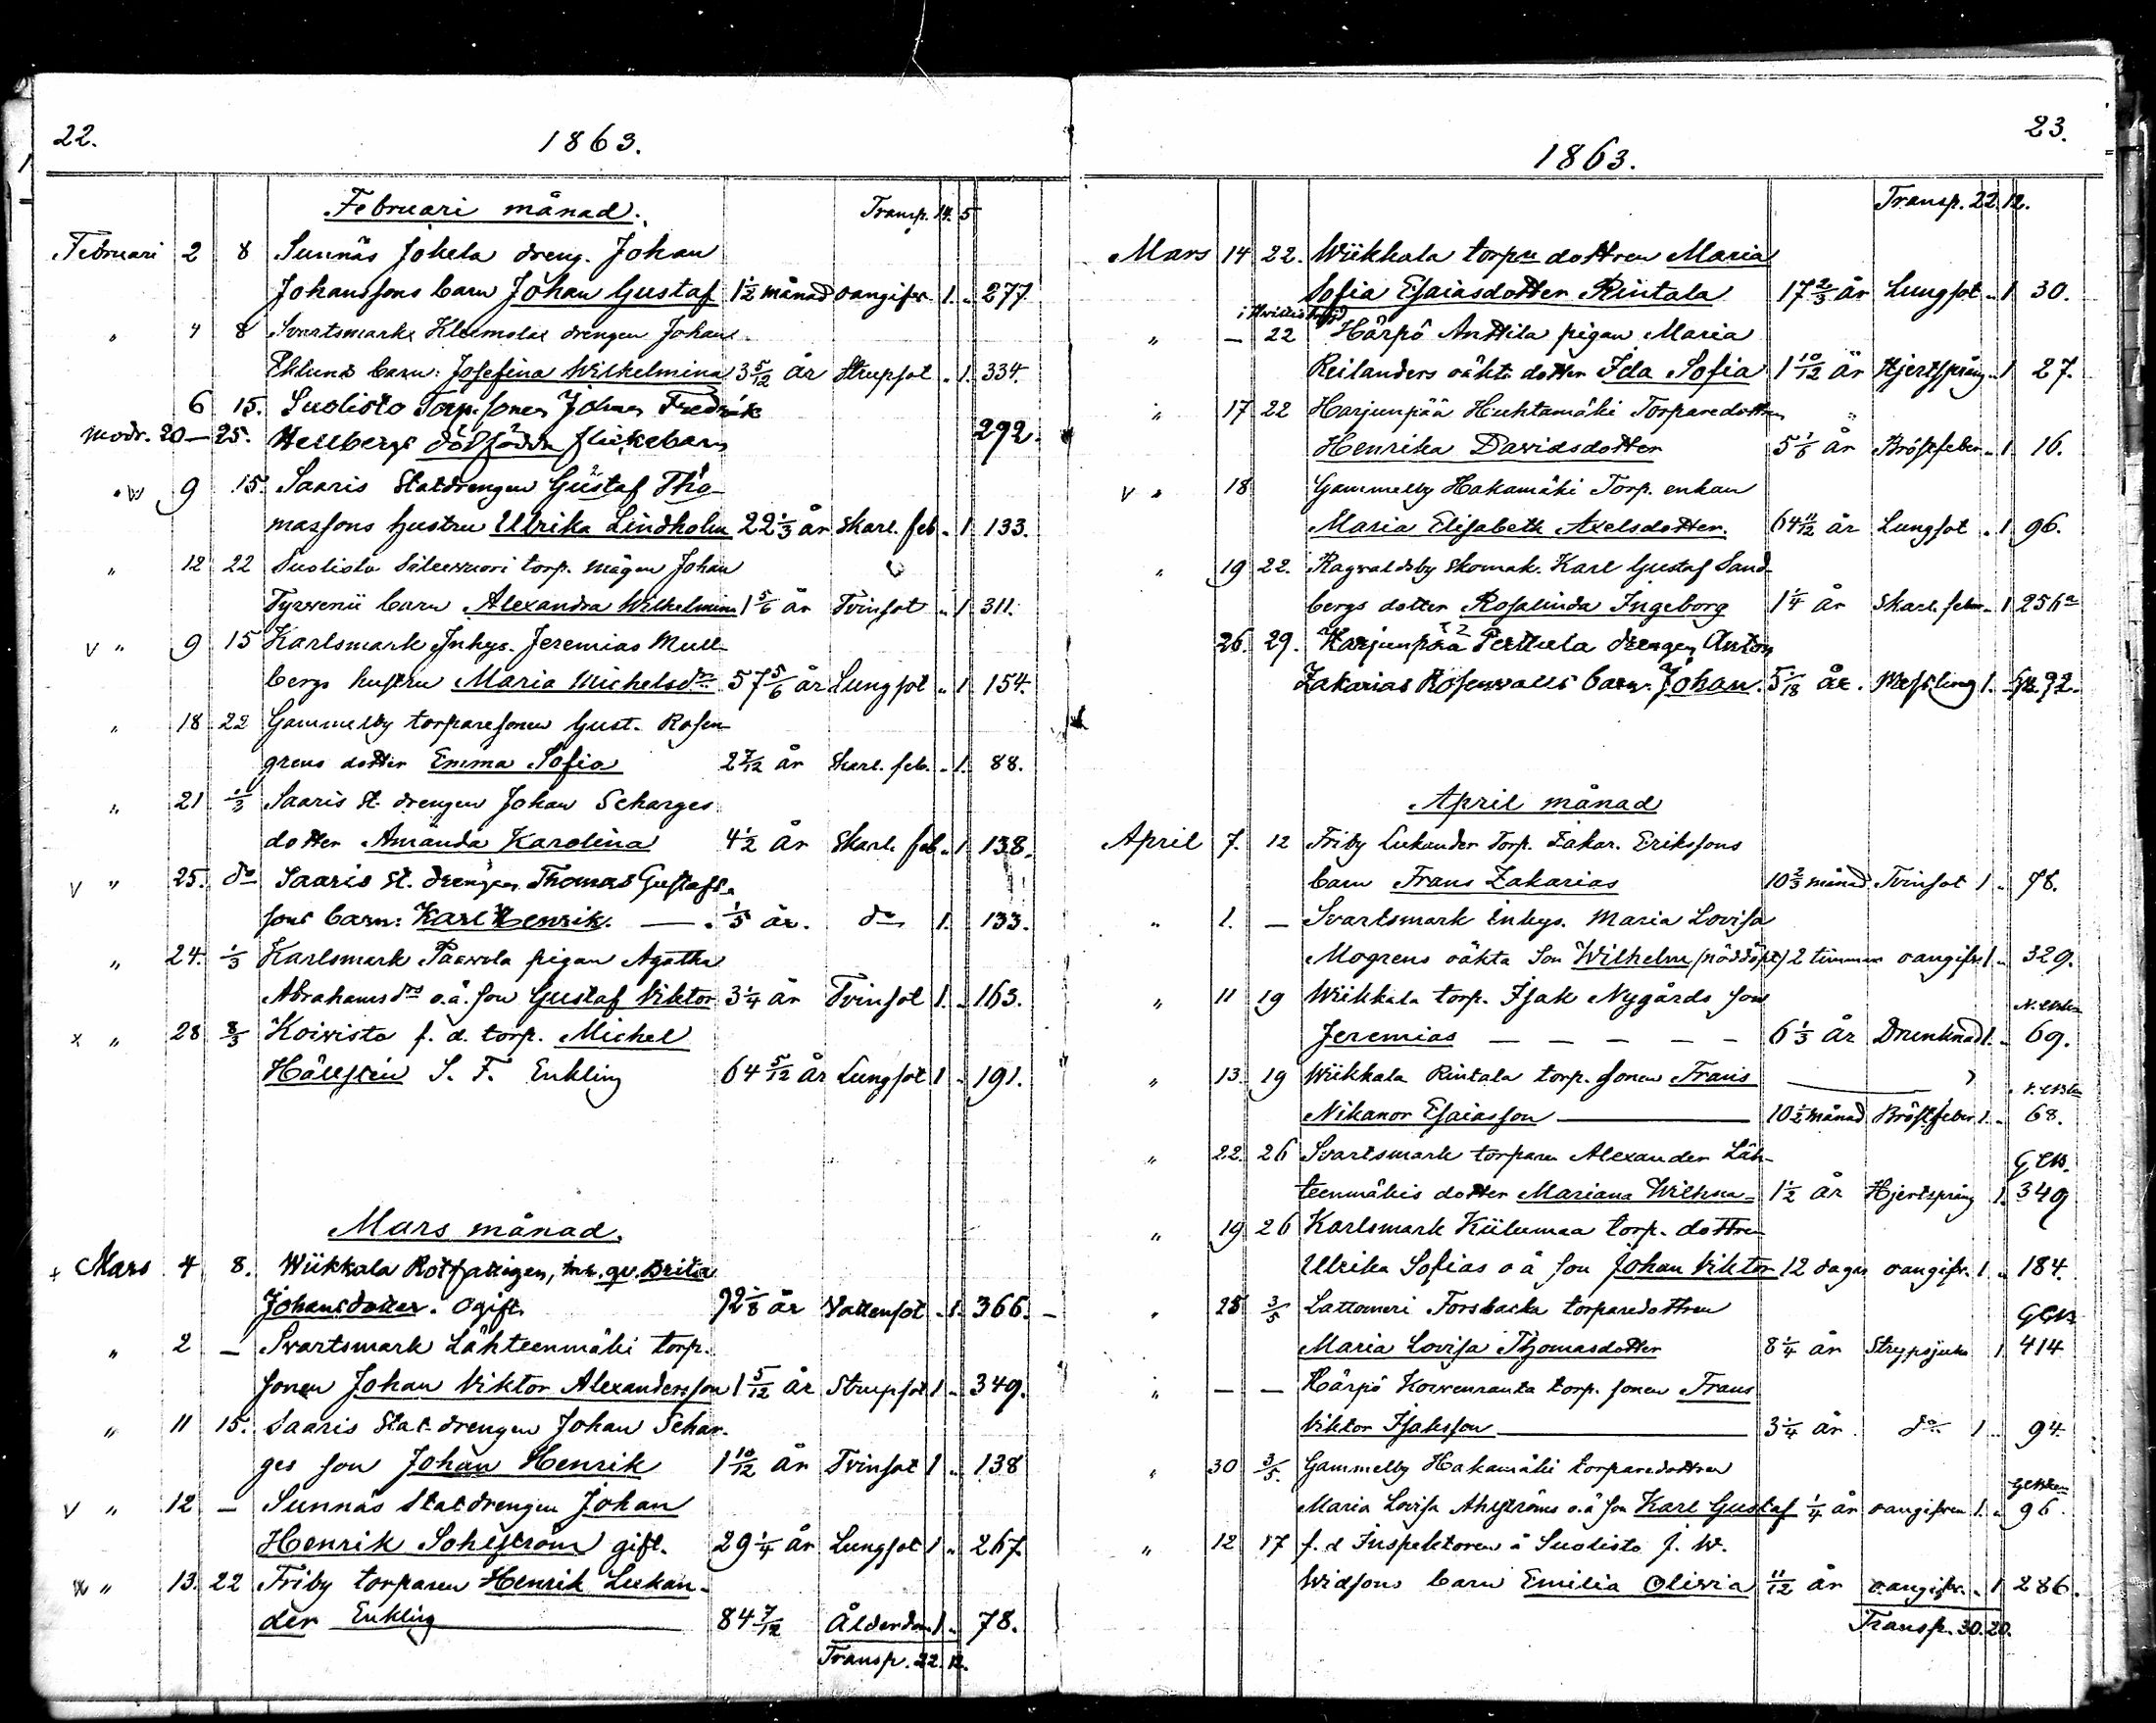 22.
1863.
Februari månad.
Transp. 14. 5
Februari 2 8 Sunnäs Jokela dreng. Johan
Johanssons barn Johan Gustaf 1 1/2 månad oangifv. 1. „ 277
„ 4 8 Svartsmark Kleemolas drengen Johan
Eklunds barn: Josefina Wilhelmina 3 5/12 år Strupsot „ 1. 334.
6 15. Suolisto Torp. sonen Johan Fredrik
modr. 20 — 25. Hellbergs dödfödda flickebarn 292.
„ 9 15. Saaris Statdrengen Gustaf Tho-
massons hustru Ulrika Lindholm 22 1/3 år Skarl. feb. „ 1 133.
„ 12 22 Suolisto torp. mågen Johan
Tyrvenii barn Alexandra Wilhelmina 1 5/6 år Tvinsot „ 1 311.
v „ 9 15 Karlsmark Inhys. Jeremias Mull-
bergs hustru Maria Michelsdr 57 5/6 år Lungsot „ 1 154.
„ 18 22 Gammelby torparesonen Gust. Rosen-
grens dotter Emma Sofia 2 7/12 år Skarl. feb. „ 1. 88.
„ 21 1/3 Saaris St. drengen Johan Scharges
dotter Amanda Karolina 4 1/2 år Skarl. feb. „ 1 138.
v „ 25. do Saaris St. drengen Thomas Gustafs-
sons barn: Karl Henrik. — . 1/5 år. do 1. 133.
„ 24. 1/3 Karlsmark Paavola pigan Agatha
Abrahamsdrs o.ä. son Gustaf Viktor 3 1/4 år Tvinsot 1. „ 163.
x „ 28 8/3 Koivisto f. d. torp. Michel
Hällsten S. F. Enkling 64 5/12 år Lungsot 1 „ 191.
Mars månad.
+ Mars 4 8. Wiikkala Rotfattigen, qv. Brita
Johansdotter. Ogift. 92 1/8 år Vattensot „ 1. 366.
„ 2 — Svartsmark Lähteenmäki torp.
sonen Johan Viktor Alexandersson 1 5/12 år Strupsot 1 „ 349.
„ 11 15. Saaris Stat drengen Johan Schar-
ges son Johan Henrik 1 10/12 år Tvinsot 1 „ 138
v „ 12 — Sunnäs Statdrengen Johan
Henrik Sohlström gift. 29 1/4 år Lungsot 1 „ 267
„ 13. 22 Friby torparen Henrik Lukan-
der Enkling 84 7/12 Ålderdom 1 „ 78.
Transp. 22. 12.
23.
1863.
Transp. 22. 12.
Mars 14 22. Wiikkala torpe dottren Maria
Sofia Esaiasdotter Rintala 17 2/3 år Lungsot „ 1 30.
„ — 22 Härpö Anttila pigan Maria
Reilanders oäkta dotter Ida Sofia 1 10/12 år Hjertsprång „ 1 27.
„ 17 22 Harjunpää Huhtamäki Torparedottren
Henrika Davidsdotter 5 1/6 år Bröstfeber „ 1 16.
v „ 18 Gammelby Hakamäki Torp. enkan
Maria Elisabeth Axelsdotter. 64 11/12 år Lungsot „ 1 96.
„ 19 22. Ragvaldsby skomak. Karl Gustaf Sand-
bergs dotter Rosalinda Ingeborg 1 1/4 år Skarl. feber „ 1 256a
26. 29. Harjunpää Perttula drengen Anton
Zakarias Rosenvalls barn: Johan. 5/18 år. Messling 1. 92.
April månad
April 7. 12 Friby Lukander Torp. Zakar. Erikssons
barn Frans Zakarias 10 2/3 månad Tvinsot 1 „ 78.
„ 1. — Svartsmark Inhys. Maria Lovisa
Mogrens oäkta Son Wilhelm (nöddöpt) 2 timmar oangifv. 1. „ 329.
„ 11 19 Wiikkala torp. Isak Nygårds son
Jeremias — — — — — 6 1/3 år Drunknad 1. „ 69.
„ 13. 19 Wiikkala Rintala torp. sonen Frans
Nikanor Esaiasson 10 1/2 månad Bröstfeber 1. „ 68.
„ 22. 26 Svartsmark torparen Alexander Läh-
teenmäkis dotter Mariana Wilhma 1 1/2 år Hjertsprång 1. 349
„ 19 26 Karlsmark Kiilumaa torp. dottren
Ulrika Sofias o ä son Johan Viktor 12 dagar oangifv. 1 „ 184.
„ 28 3/5 Lattomeri Forsbacka torparedottren
Maria Lovisa Thomasdotter 8 1/4 år Strypsjuka 1 414
„ — — Härpö Koivenranta torp. sonen Frans
Viktor Isaksson 3 1/4 år do 1 .. 94.
„ 30 3/5. Gammelby Hakamäki torparedottren
Maria Lovisa Ahlströms o.ä son Karl Gustaf 1/4 år oangifven 1. „ 96.
„ 12 17 f. d Inspektoren å Suolisto J. W.
Widsons barn Emilia Olivia 11/12 år oangifv. „ 1 286.
Transp. 30. 20.